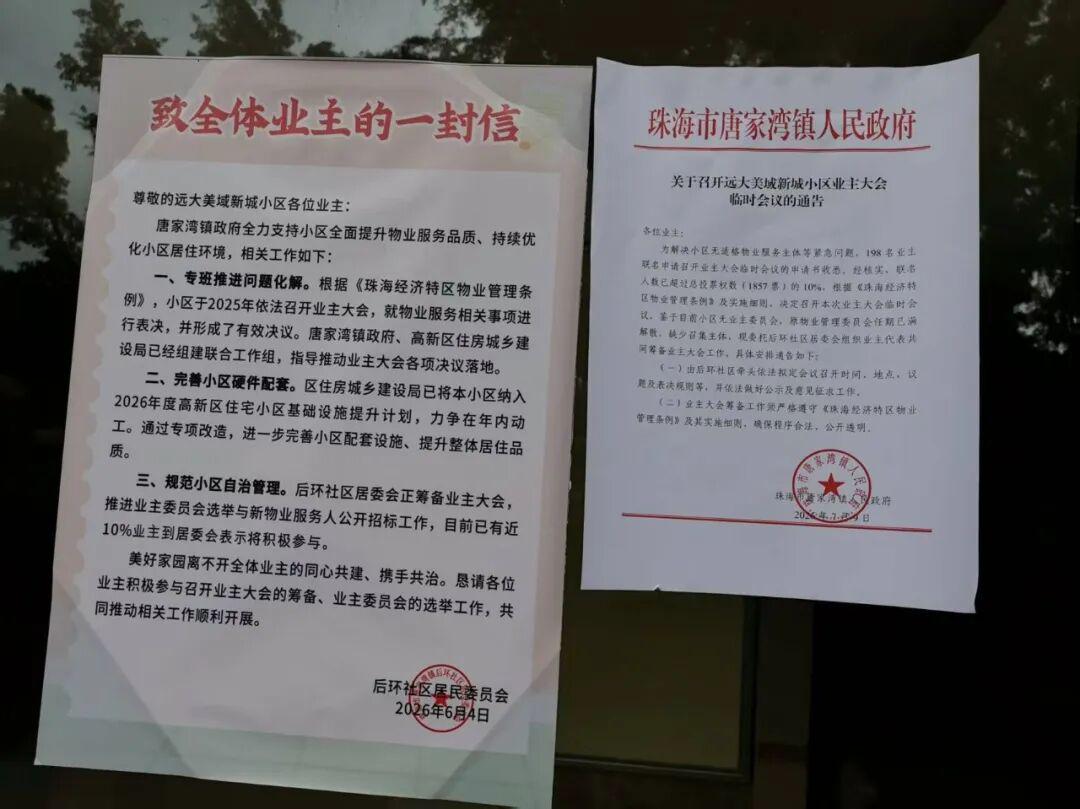 致全体业主的一封信
尊敬的远大美域新城小区各位业主：
唐家湾镇政府全力支持小区全面提升物业服务品质、持续优
化小区居住环境，相关工作如下：
一、专班推进问题化解。根据《珠海经济特区物业管理条
例》，小区于2025年依法召开业主大会，就物业服务相关事项进
行表决，并形成了有效决议。唐家湾镇政府、高新区住房城乡建
设局已经组建联合工作组，指导推动业主大会各项决议落地。
二、完善小区硬件配套。区住房城乡建设局已将本小区纳入
2026年度高新区住宅小区基础设施提升计划，力争在年内动
工。通过专项改造，进一步完善小区配套设施、提升整体居住品
质。
三、规范小区自治管理。后环社区居委会正筹备业主大会，
推进业主委员会选举与新物业服务人公开招标工作，目前已有近
10%业主到居委会表示将积极参与。
美好家园离不开全体业主的同心共建、携手共治。恳请各位
业主积极参与召开业主大会的筹备、业主委员会的选举工作，共
同推动相关工作顺利开展。
后环社区居民委员会
2026年6月4日
珠海市唐家湾镇人民政府
关于召开远大美域新城小区业主大会
临时会议的通告
各位业主：
为解决小区无适格物业服务主体等紧急问题，198名业主
联名申请召开业主大会临时会议的申请书收悉。经核实，联名
人数已超过总投票权数（1857票）的10%，根据《珠海经济特
区物业管理条例》及实施细则，决定召开本次业主大会临时会
议。鉴于目前小区无业主委员会，原物业管理委员会任期已满
解散，缺少召集主体，现委托后环社区居委会组织业主代表共
同筹备业主大会工作，具体安排通告如下：
（一）由后环社区牵头依法拟定会议召开时间、地点、议
题及表决规则等，并依法做好公示及意见征求工作。
（二）业主大会筹备工作须严格遵守《珠海经济特区物业
管理条例》及其实施细则，确保程序合法、公开透明。
珠海市唐家湾镇人民政府